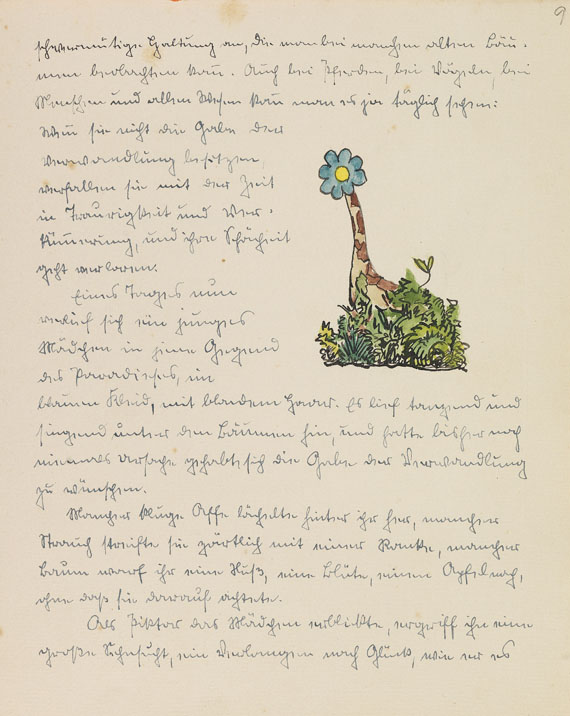 9
schwermütige Haltung an, die man bei manchen alten Bäu-
men beobachten kan. Auch bei Pferden, bei Vögeln, bei
Menschen und allen Wesen kan man es ja täglich sehen:
Wen sie nicht die Gabe der
Verwandlung besitzen,
verfallen sie mit der Zeit
in Traurigkeit und Ver-
kümerung, und ihre Schönheit
geht verloren.
Eines Tages nun
verlief sich ein junges
Mädchen in jene Gegend
des Paradieses, im
blauen Kleid, mit blondem Haar. Es lief tanzend und
singend unter den Bäumen hin, und hatte bisher noch
niemals Ursache gehabt sich die Gabe der Verwandlung
zu wünschen.
Mancher kluge Affe lächelte hinter ihr her, mancher
Strauch streifte sie zärtlich mit einer Ranke, mancher
Baum warf ihr eine Nuß, eine Blüte, einen Apfel nach,
ohne daß sie darauf achtete.
Als Piktor das Mädchen erblickte, ergriff ihn eine
große Sehnsucht, ein Verlangen nach Glück, wie er es